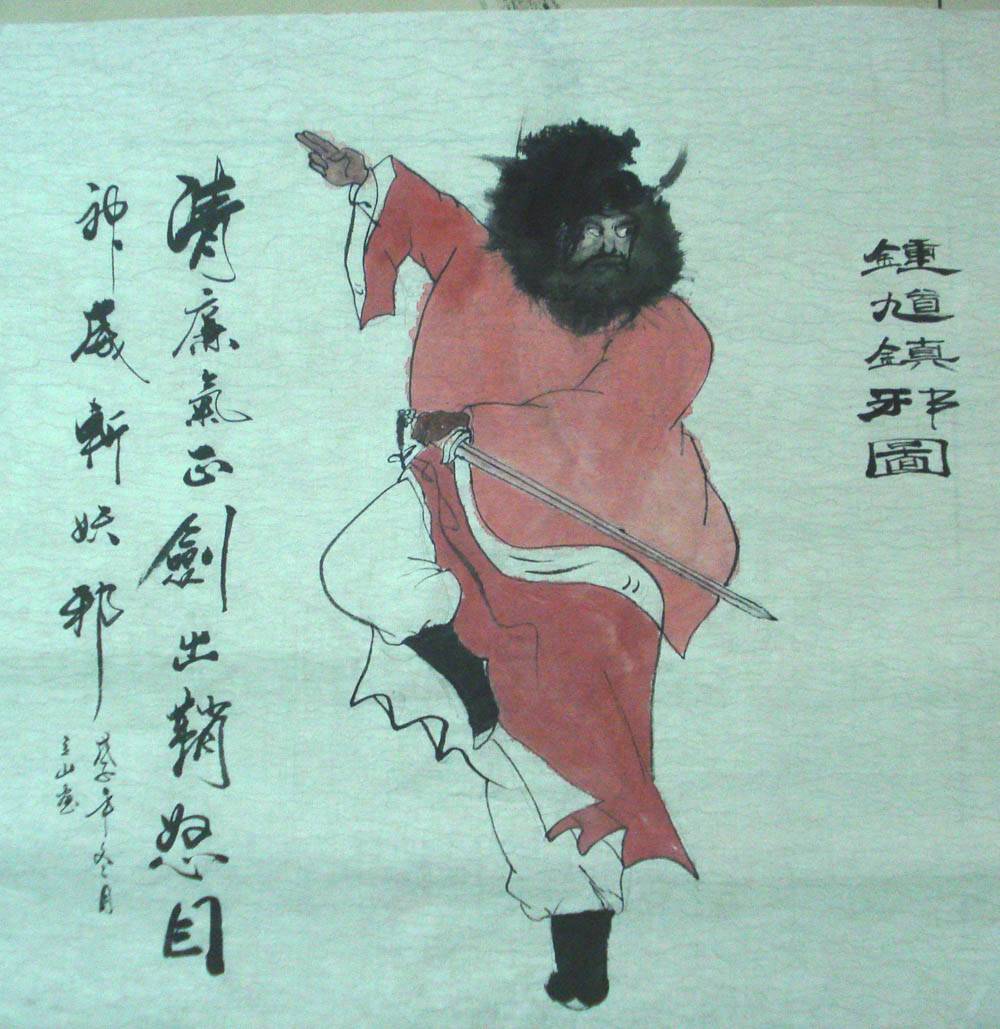 鍾馗鎮邪圖
清廉氣正劍出鞘怒目
神威斬妖邪
年冬月
立山畫